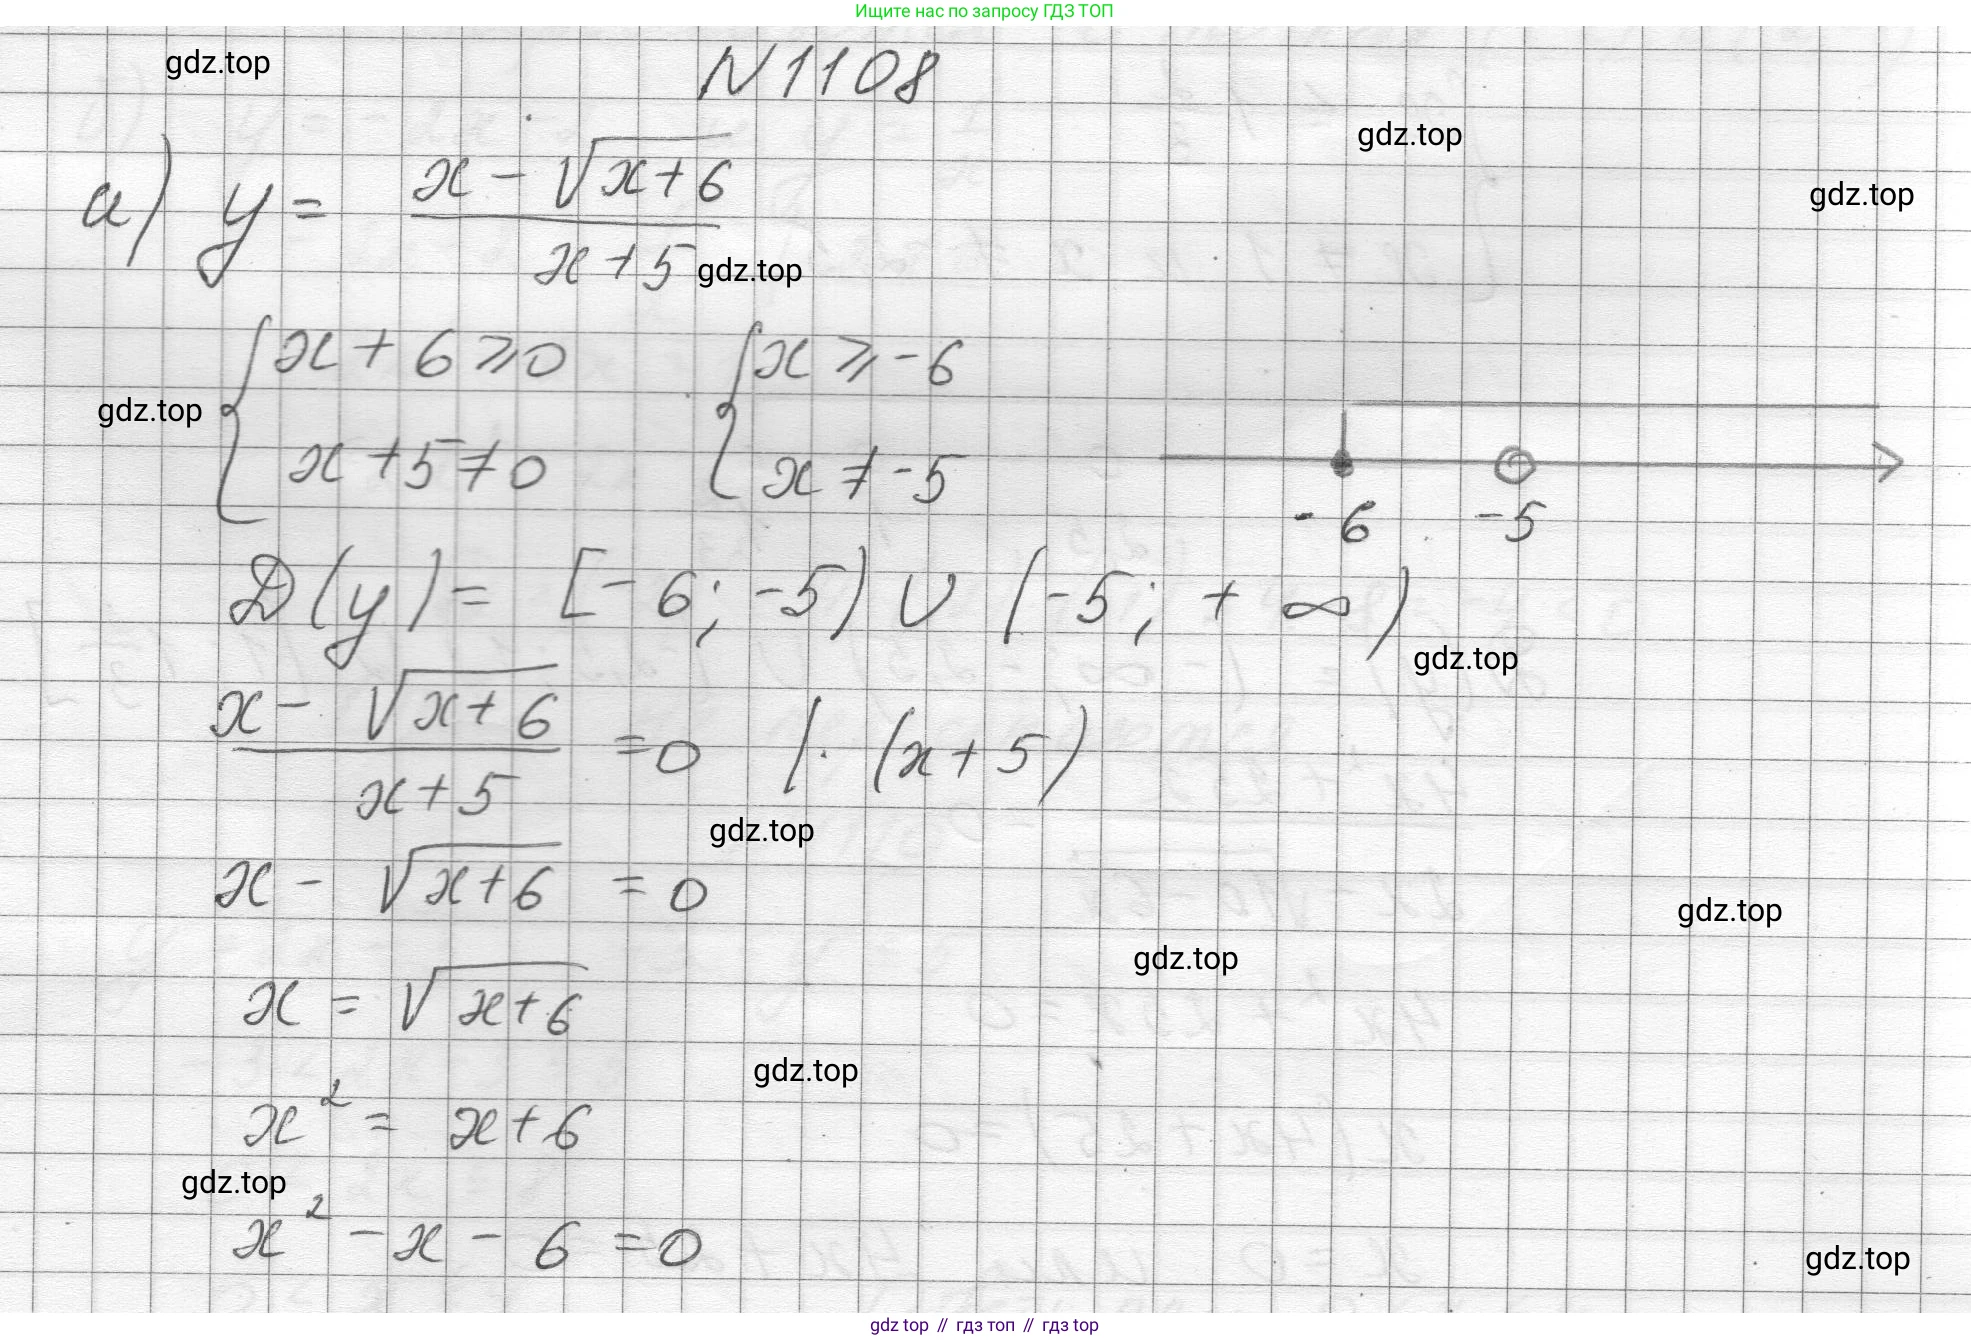 Ищите нас по запросу ГДЗ ТОП
gdz.top
N 1108
gdz.top
gdz.top
а) y = (x - √(x+6)) / (x+5)
gdz.top
{ x + 6 ⩾ 0 { x ⩾ -6
gdz.top
x + 5 ≠ 0 x ≠ -5
-6 -5
D(y) = [-6; -5) ∪ (-5; +∞)
gdz.top
(x - √(x+6)) / (x+5) = 0 | · (x+5)
gdz.top
x - √(x+6) = 0
gdz.top
gdz.top
x = √(x+6)
gdz.top
x² = x+6
gdz.top
x² - x - 6 = 0
gdz.top
gdz top // гдз топ // гдз top